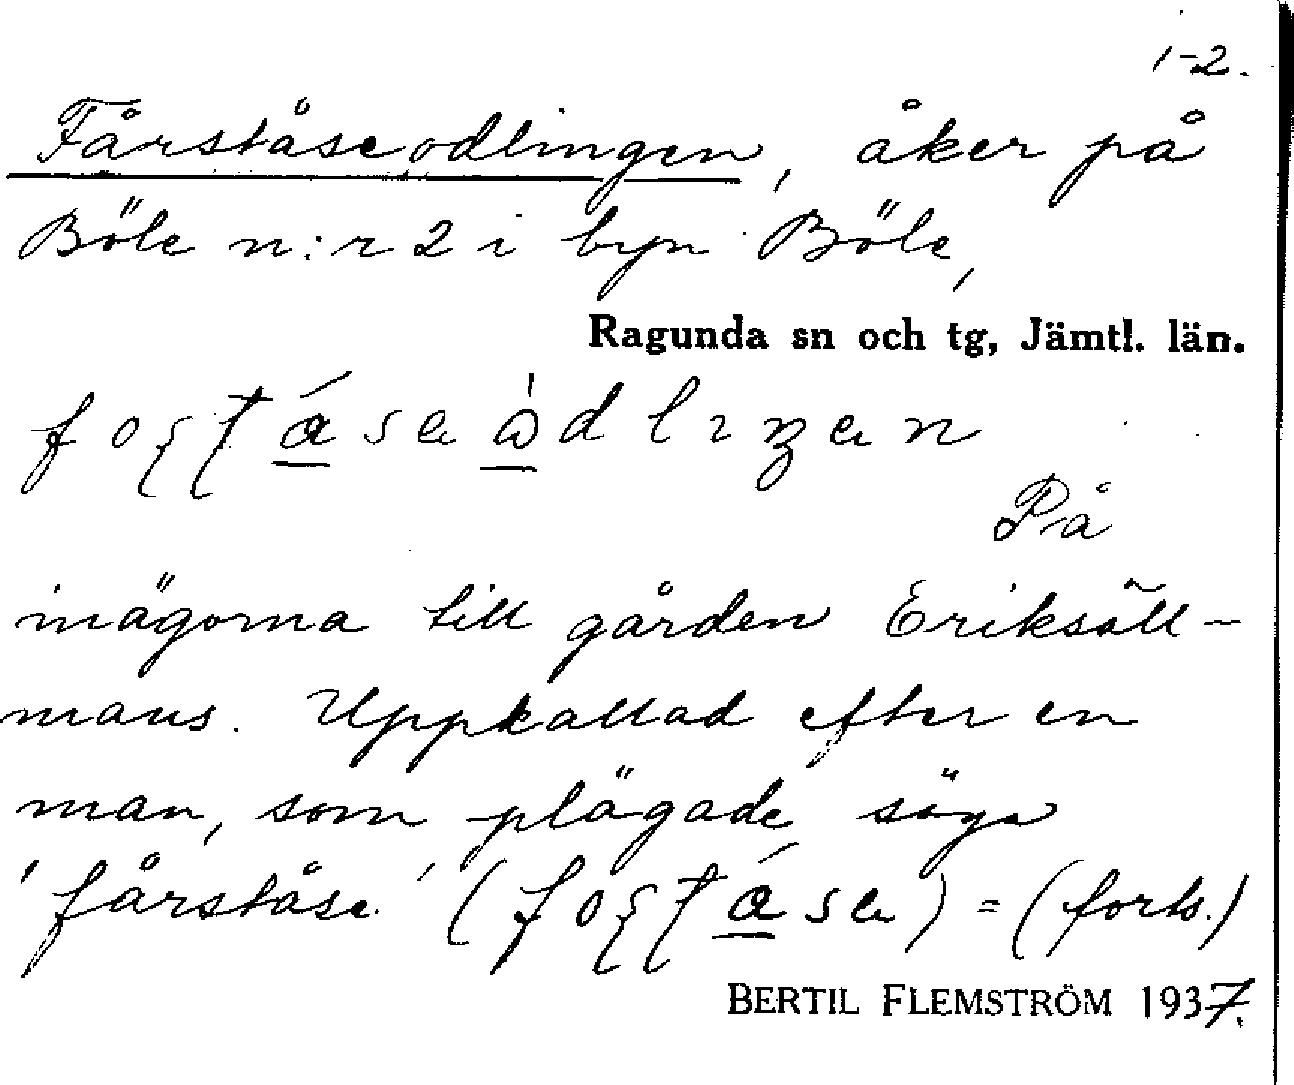 1-2.
Fårståseodlingen, åker på
Böle n:r 2 i byn Böle,
Ragunda sn och tg, Jämtl. län.
På
inägorna till gården Eriksäll-
mans. Uppkallad efter en
man, som plägade säga
'fårståse' ( ) = (forts.)
BERTIL FLEMSTRÖM 1937.